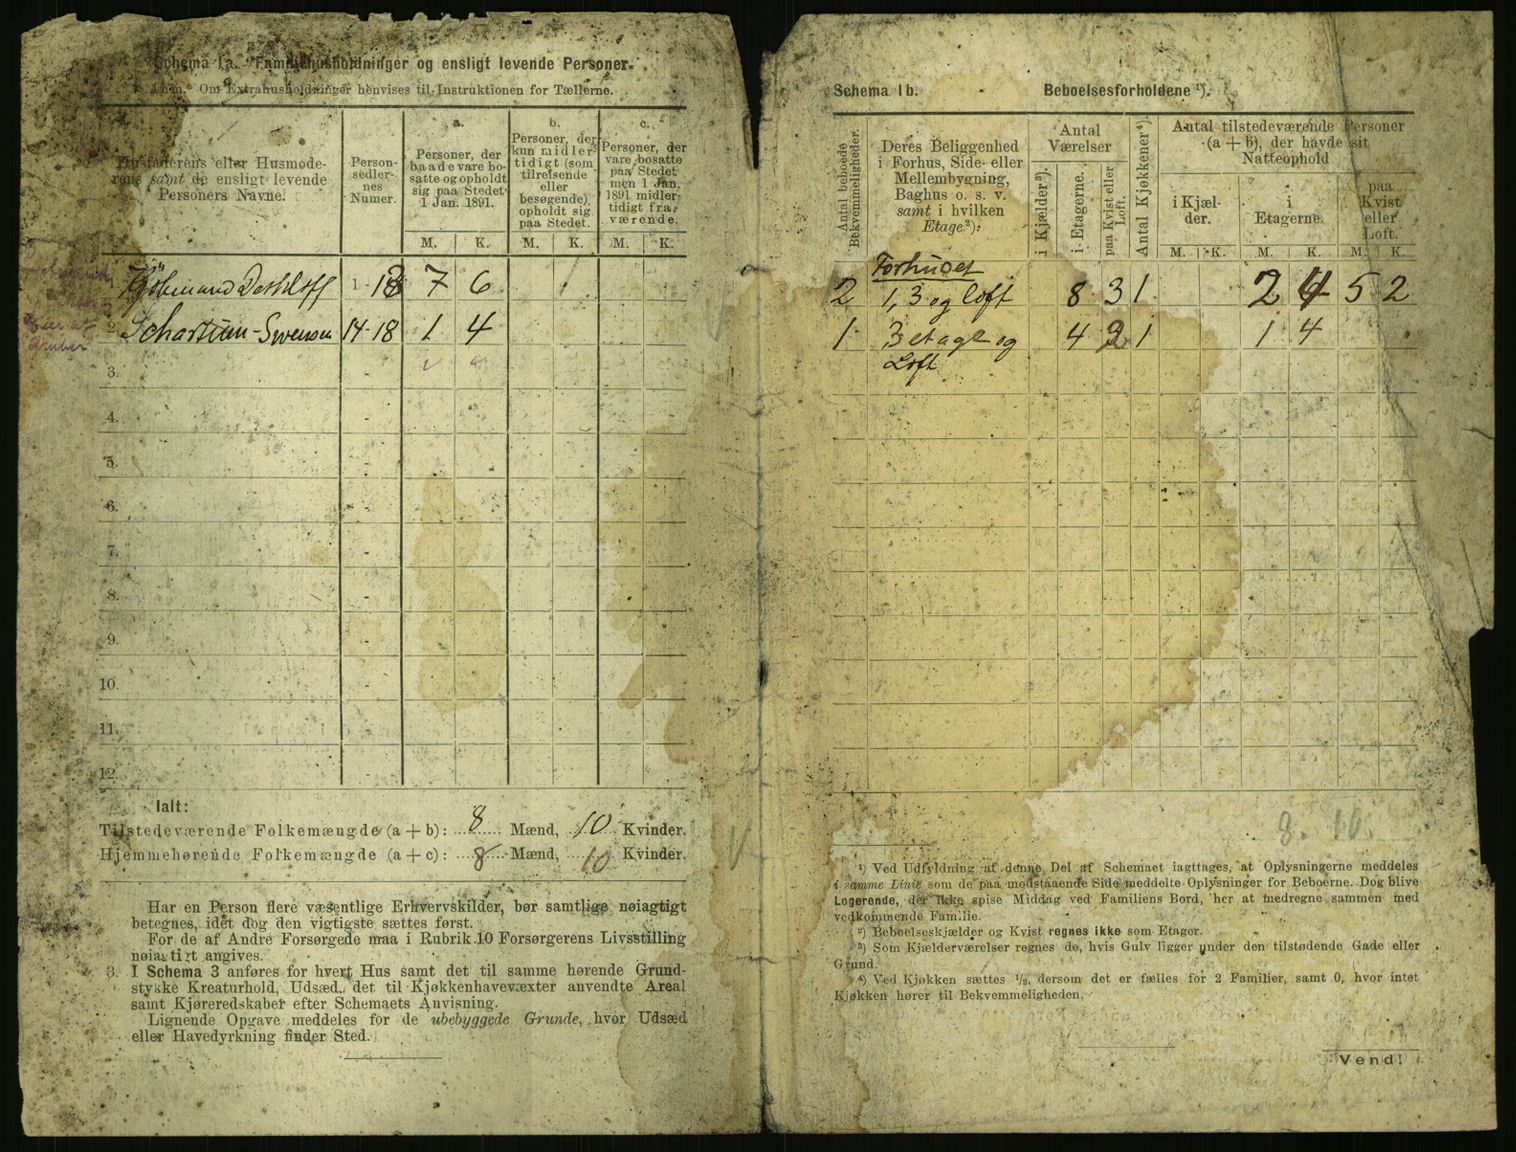 Schema 1a. Familiehusholdninger og ensligt levende Personer.
Anm. Om Extrahusholdninger henvises til Instruktionen for Tællerne.
Husfaderens eller Husmode-
rens samt de ensligt levende
Personers Navne.
Person-
sedler-
nes
Numer.
a.
Personer, der
baade vare bo-
satte og opholdt
sig paa Stedet
1 Jan. 1891.
b.
Personer, der
kun midler-
tidigt (som
tilreisende
eller
besøgende)
opholdt sig
paa Stedet.
c.
Personer, der
vare bosatte
paa Stedet
men 1 Jan.
1891 midler-
tidigt fra-
værende.
M. K. M. K. M. K.
1. Kjøbmand Dethloff 1-13 7 6
2. Schartum-Svensen 14-18 1 4
3.
4.
5.
6.
7.
8.
9.
10.
11.
12.
Ialt:
Tilstedeværende Folkemængde (a + b): 8 Mænd, 10 Kvinder.
Hjemmehørende Folkemængde (a + c): 8 Mænd, 10 Kvinder.
Har en Person flere væsentlige Erhvervskilder, bør samtlige nøiagtigt
betegnes, idet dog den vigtigste sættes først.
For de af Andre Forsørgede maa i Rubrik 10 Forsørgerens Livsstilling
nøiagtigt angives.
3. I Schema 3 anføres for hvert Hus samt det til samme hørende Grund-
stykke Kreaturhold, Udsæd, det til Kjøkkenhavevæxter anvendte Areal
samt Kjøreredskaber efter Schemaets Anvisning.
Lignende Opgave meddeles for de ubebyggede Grunde, hvor Udsæd
eller Havedyrkning finder Sted.
Schema 1b. Beboelsesforholdene ¹).
Antal beboede
Bekvemmeligheder.
Deres Beliggenhed
i Forhus, Side- eller
Mellembygning,
Baghus o. s. v.
samt i hvilken
Etage²):
Antal
Værelser
i Kjælder³).
i Etagerne.
paa Kvist eller
Loft.
Antal Kjøkkener⁴).
Antal tilstedeværende Personer
(a + b), der havde sit
Natteophold
i Kjæl-
der.
i
Etagerne.
paa
Kvist
eller
Loft.
M. K. M. K. M. K.
Forhuset
2 1, 3 og loft 8 3 1 2 4 5 2
1 3 etage og 4 2 1 1 4
Loft
8. 10.
¹) Ved Udfyldning af denne Del af Schemaet iagttages, at Oplysningerne meddeles
i samme Linie som de paa modstaaende Side meddelte Oplysninger for Beboerne. Dog blive
Logerende, der ikke spise Middag ved Familiens Bord, her at medregne sammen med
vedkommende Familie.
²) Beboelseskjælder og Kvist regnes ikke som Etager.
³) Som Kjælderværelser regnes de, hvis Gulv ligger under den tilstødende Gade eller
Grund.
⁴) Ved Kjøkken sættes ½, dersom det er fælles for 2 Familier, samt 0, hvor intet
Kjøkken hører til Bekvemmeligheden.
Vend!